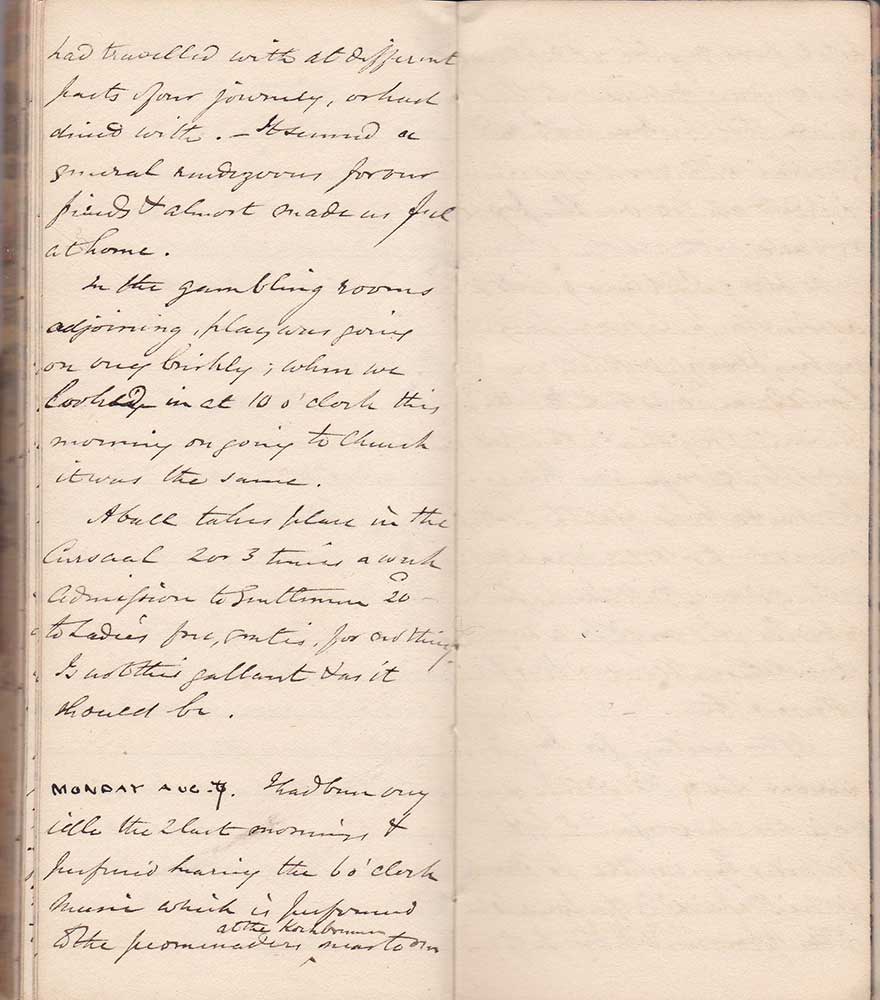 had travelled with at different
parts of our journey, or had
dined with. - It seemed a
general rendezvous for our
friends & almost made us feel
at home.
In the gambling rooms
adjoining, play was going
on very briskly; when we
looked in at 10 o'clock this
morning on going to Church
it was the same.
A ball takes place in the
Cursaal 2 or 3 times a week
Admission to Gentlemen 20
to Ladies free, gratis, for nothing
Is not this gallant & as it
should be.
MONDAY AUG. 9. I had been very
idle the 2 last mornings &
preferr'd hearing the 6 o'clock
music which is performed
at the Kochbrunnen
to the promenaders near to our